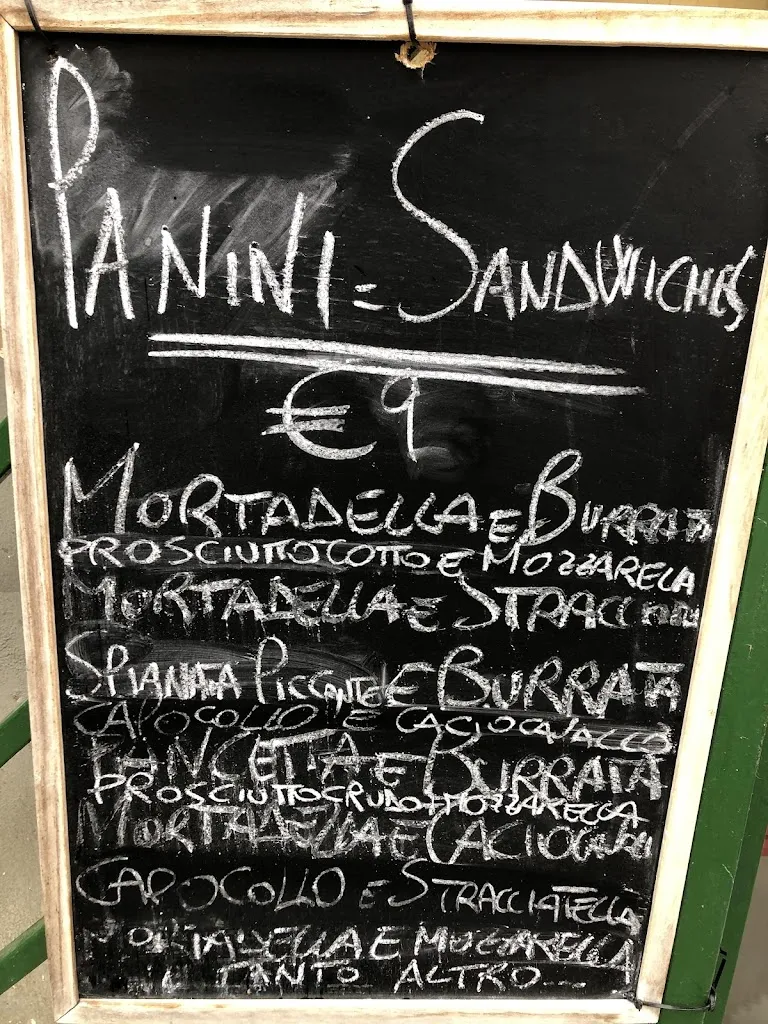 PANINI = SANDWICHES
€ 9
MORTADELLA E BURRATA
PROSCIUTTO COTTO E MOZZARELLA
MORTADELLA E STRACC
SPIANATA PICCANTE E BURRATA
CAPOCOLLO E CACIOCAVALLO
PANCETTA E BURRATA
PROSCIUTTO CRUDO + MOZZARELLA
MORTADELLA E CACIOCAVALLO
CAPOCOLLO E STRACCIATELLA
MORTADELLA E MOZZARELLA
E TANTO ALTRO...